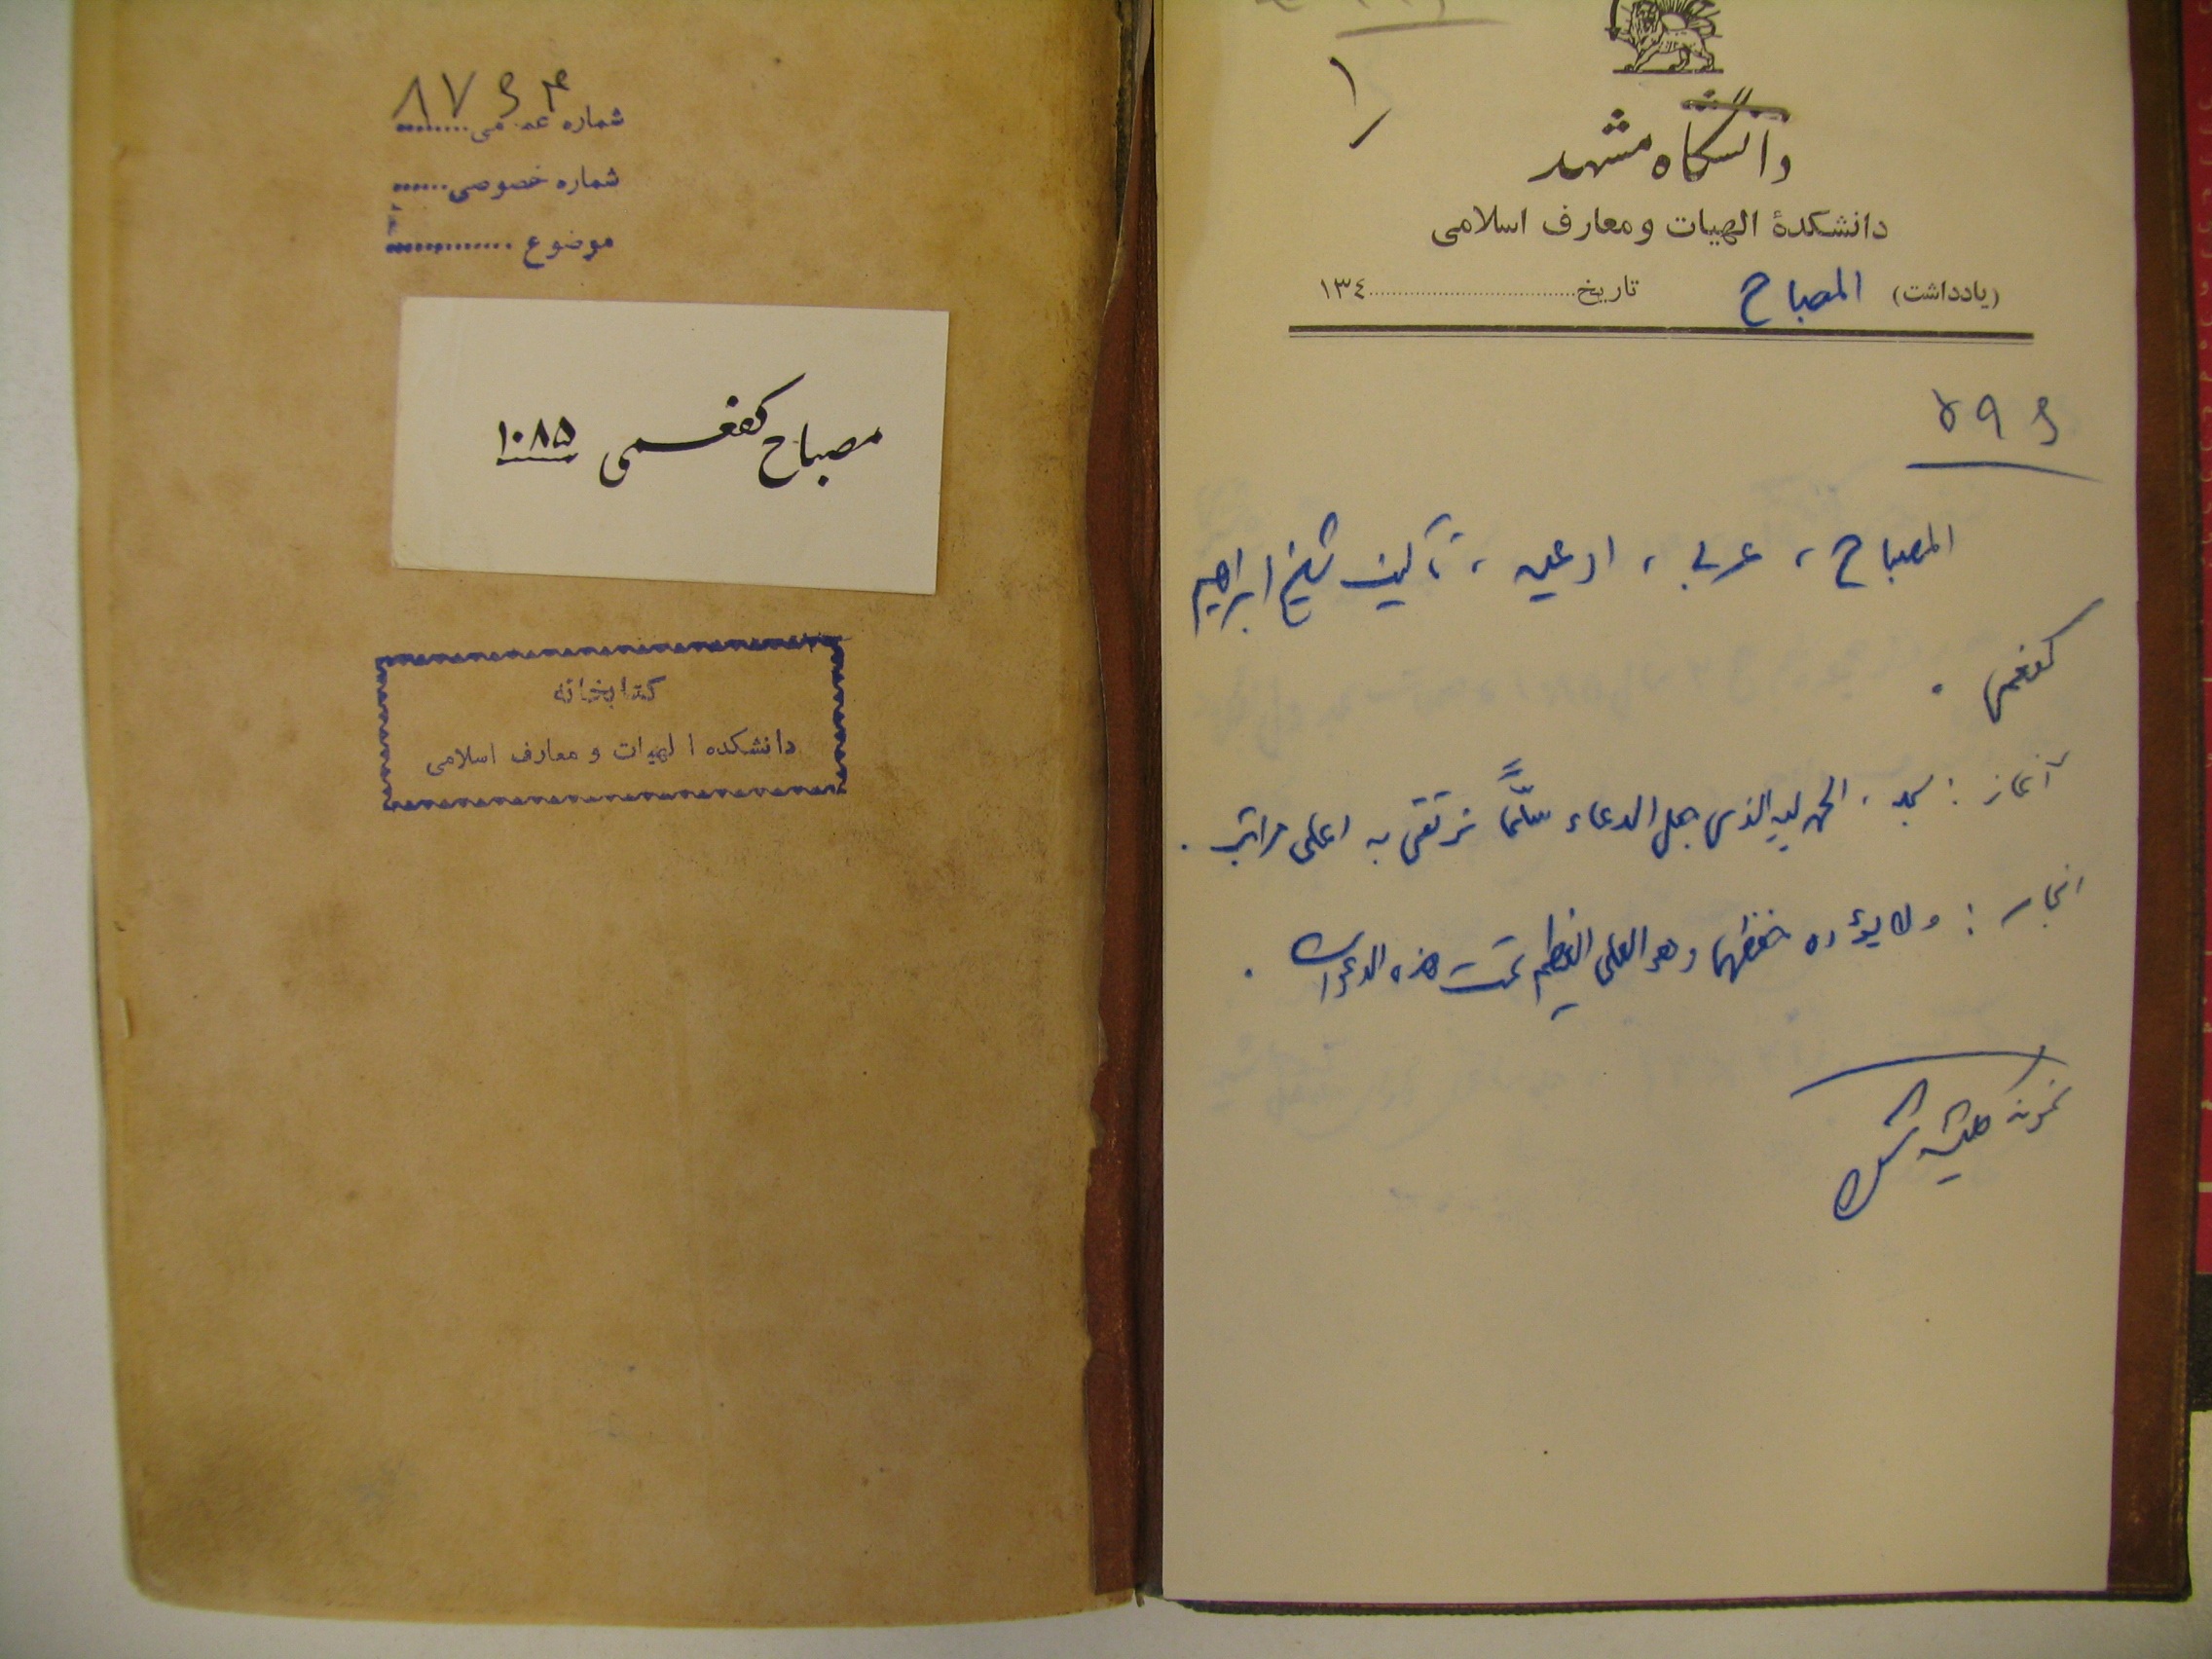 شماره عمومی ۸۷۶۴
شماره خصوصی
موضوع
مصباح کفعمی ۱۰۸۵
کتابخانه
دانشکده الهیات و معارف اسلامی
۱
دانشگاه مشهد
دانشکدهٔ الهیات و معارف اسلامی
(یادداشت) المصباح تاریخ ۱۳٤
۵۹۶
المصباح ، عربی ، ادعیه ، تألیف شیخ ابراهیم
کفعمی .
آغاز : الحمد لله الذی جعل الدعاء سلّماً نرتقی به اعلی مراتب .
انجام : ولا یؤده حفظهما و هو العلی العظیم تمت هذه الدعوات .
نمونه